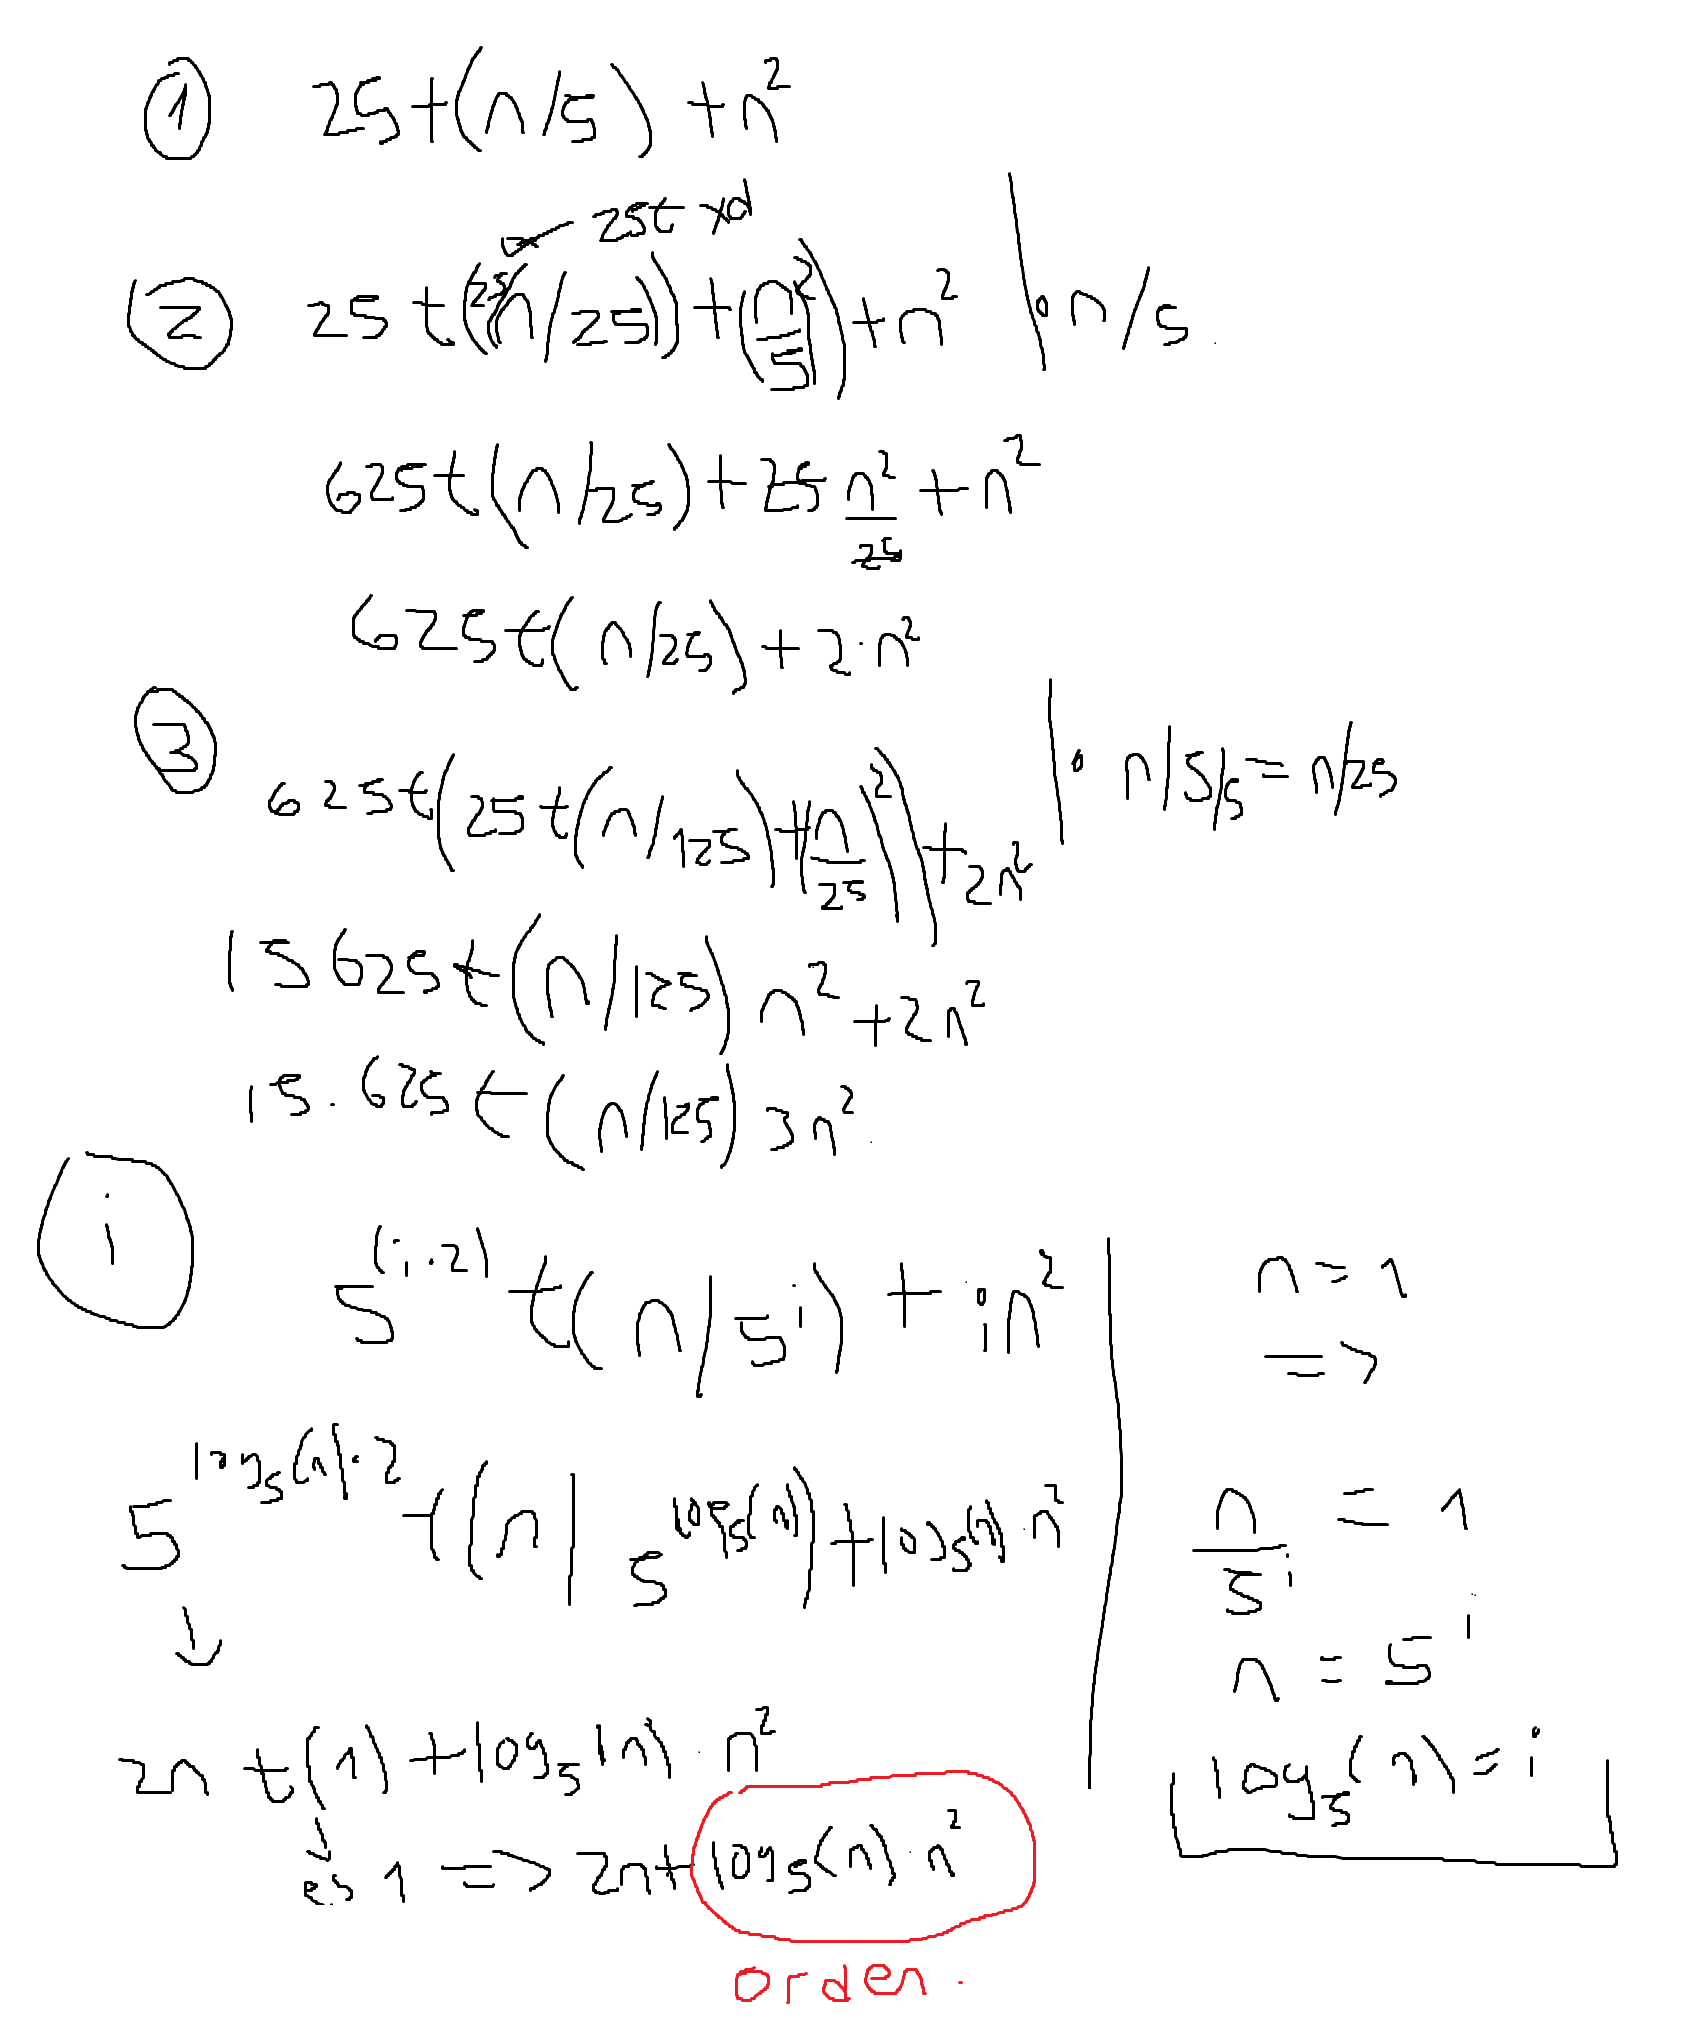 ① 25t(n/5) + n²
25t xd
② 25t(25(n/25)) + (n/5)²) + n² | · n/5
625t(n/25) + 25 n²/25 + n²
625t(n/25) + 2·n²
③
625t(25t(n/125) + (n/25)²) + 2n² | · n/5/5 = n/25
15625t(n/125) n² + 2n²
15.625t(n/125) 3n²
i
5^(i·2) t(n/5^i) + in² | n = 1
=>
5^log₅(n)·2 t(n/5^log₅(n)) + log₅(n)·n² | n/5^i = 1
↓
n = 5^i
2n t(1) + log₅(n)·n² | log₅(n) = i
↓
es 1 => 2n + log₅(n)·n²
orden.